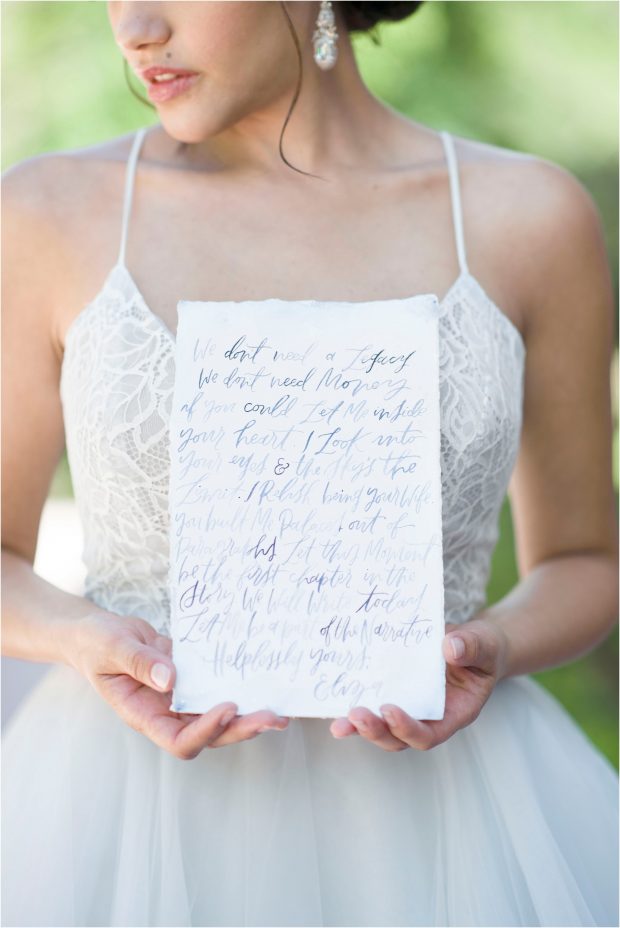 We dont need a Legacy
We dont need Money
if you could Let Me inside
your heart. I Look into
your eyes & the sky's the
Limit. I Relish being your Wife.
you built Me Palaces out of
Paragraphs Let this Moment
be the first chapter in the
Story We Will Write today
Let Me be a part of the Narrative
Helplessly yours,
Eliza